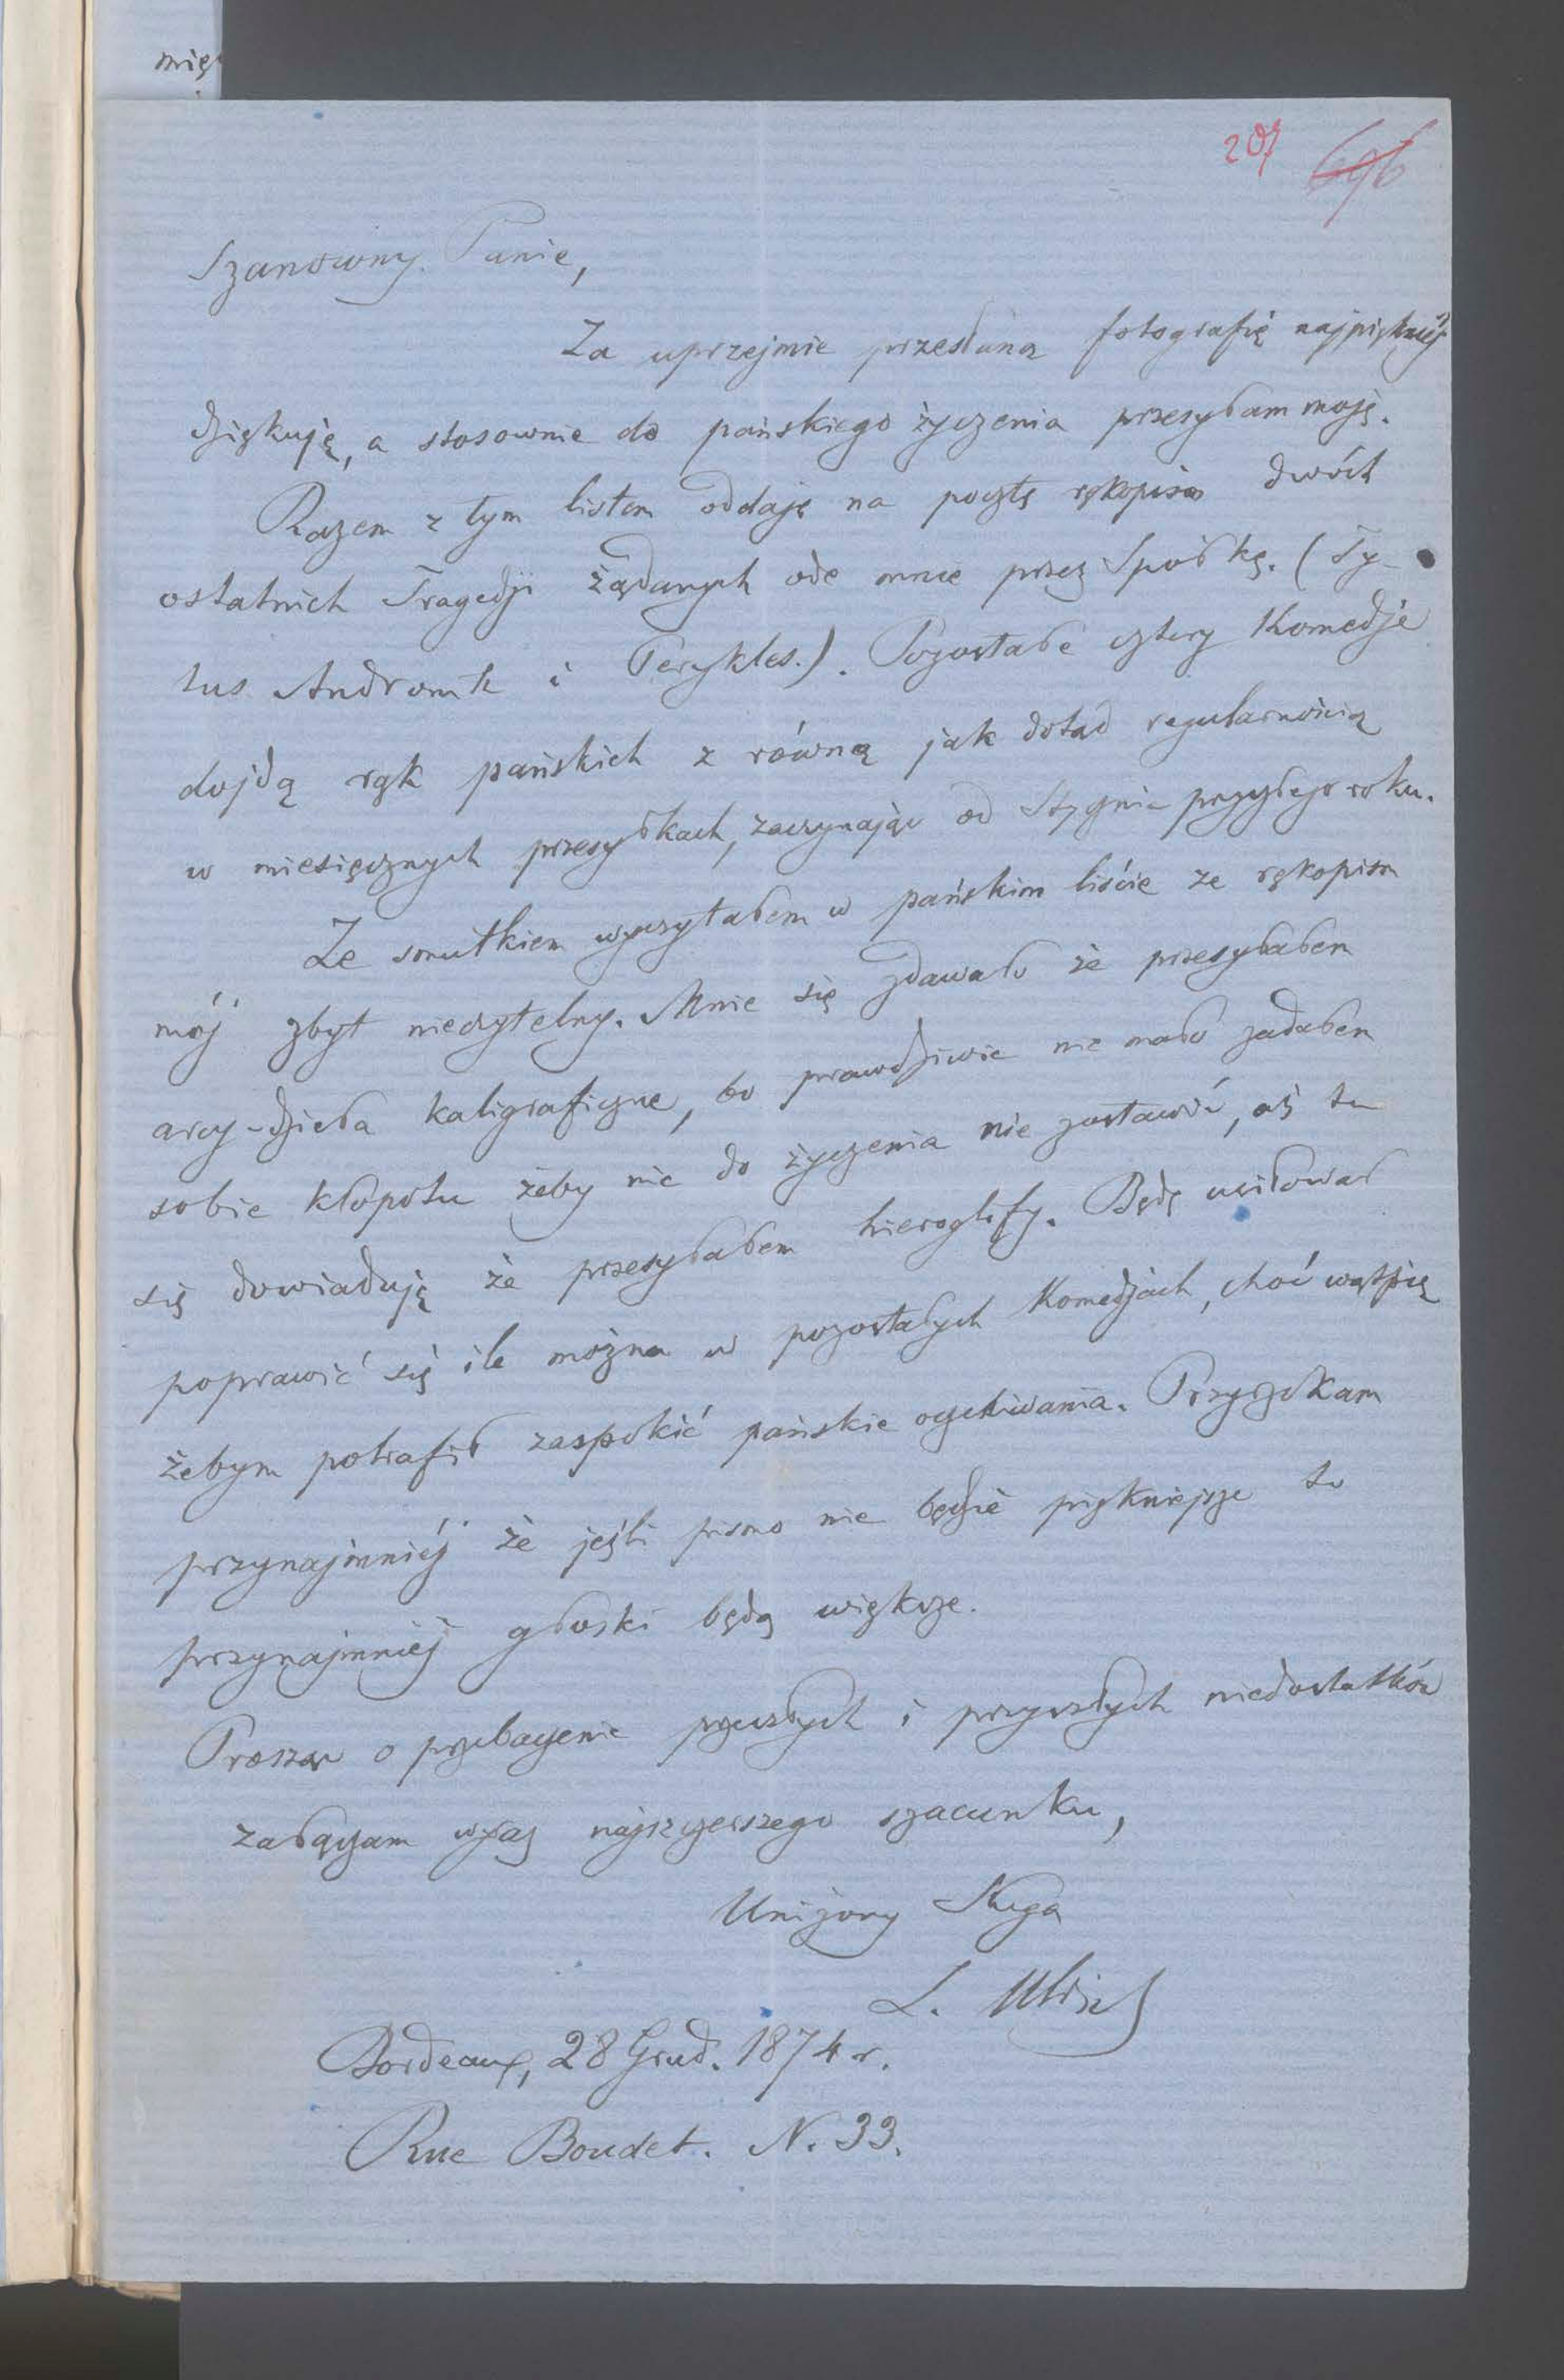 mię
207 696
Szanowny Panie,
Za uprzejmie przesłaną fotografię najpiękniéj
dziękuję, a stosownie do pańskiego życzenia przesyłam moję.
Razem z tym listem oddaję na pocztę rękopism dwóch
ostatnich Tragedji żądanych ode mnie przez Spółkę. (Ty-
tus Andronik i Perykles.). Pozostałe cztery Komedje
dojdą rąk pańskich z równą jak dotąd regularnością
w miesięcznych przesyłkach, zaczynając od Stycznia przyszłego roku.
Ze smutkiem wyczytałem w pańskim liście że rękopism
mój zbyt nieczytelny. Mnie się zdawało że przesyłałem
arcy-dzieła kaligraficzne, bo prawdziwie nie mało zadałem
sobie kłopotu żeby nic do życzenia nie zostawić, aż tu
się dowiaduję że przesyłałem hieroglify. Będę usiłował
poprawić się ile można w pozostałych Komedjach, choć wątpię
żebym potrafił zaspokoić pańskie oczekiwania. Przyrzekam
przynajmniéj że jeśli pismo nie będzie piękniejsze to
przynajmniéj głoski będą większe.
Prosząc o przebaczenie przeszłych i przyszłych niedostatków
załączam wyraz najszczerszego szacunku,
Uniżony Sługa
L. Ulrich
Bordeaux, 28 Grud. 1874 r.
Rue Boudet. N. 33.